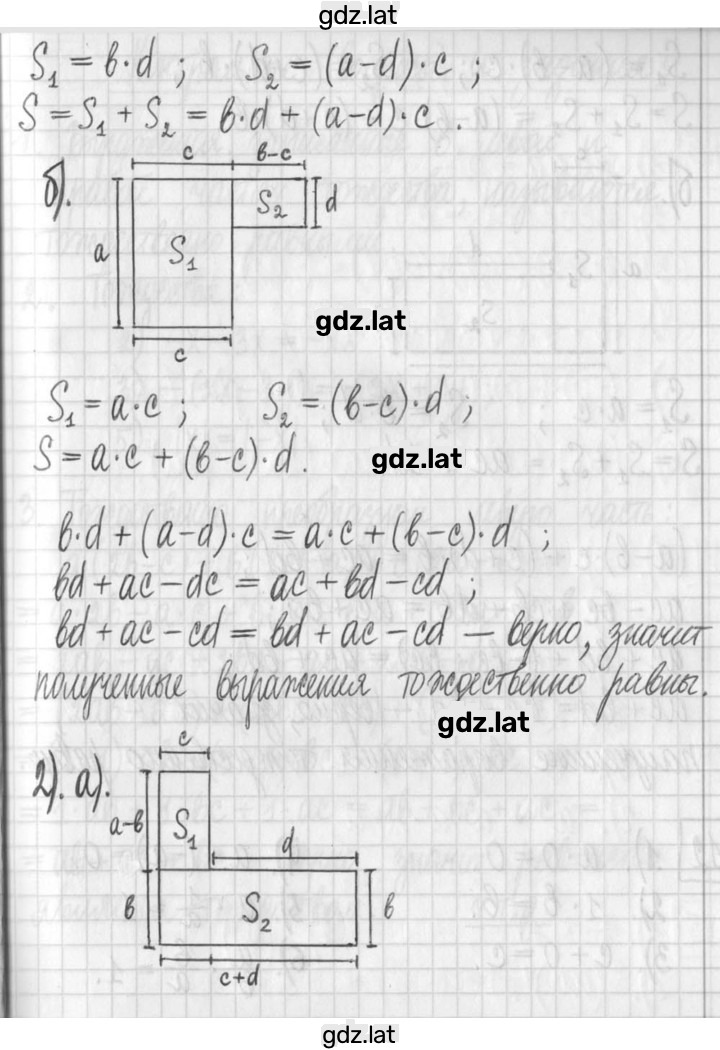 gdz.lat
S₁ = в·d ; S₂ = (a−d)·c ;
S = S₁ + S₂ = в·d + (a−d)·c .
c в−c
б).
S₂ d
a S₁
gdz.lat
c
S₁ = a·c ; S₂ = (в−c)·d ;
S = a·c + (в−c)·d . gdz.lat
в·d + (a−d)·c = a·c + (в−c)·d ;
вd + ac − dc = ac + вd − cd ;
вd + ac − cd = вd + ac − cd — верно, значит
полученные выражения тождественно равны.
gdz.lat
c
2). а).
a−в S₁ d
в S₂ в
c+d
gdz.lat